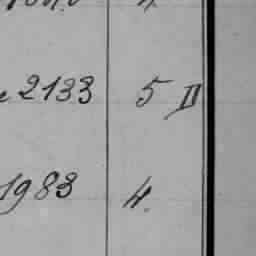 2133 5 II
1983 4.